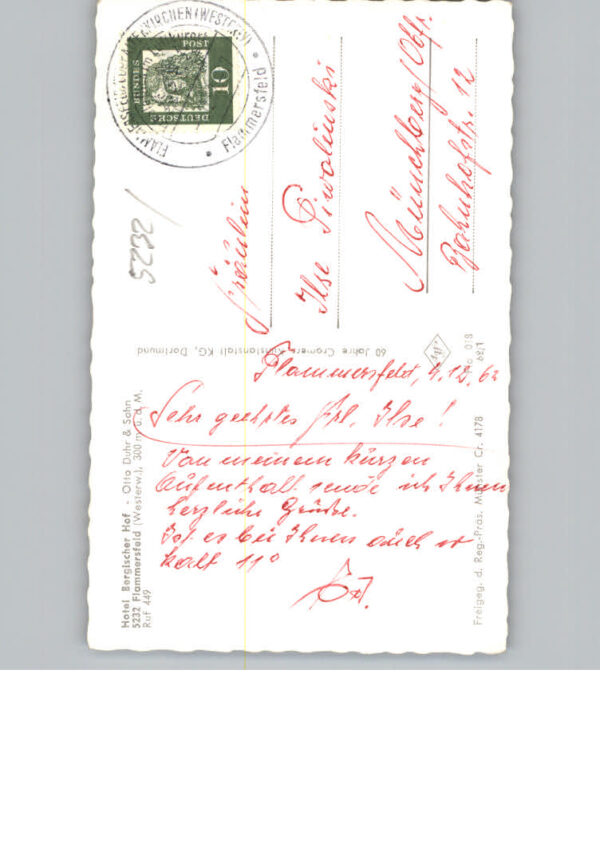 Flammersfeld
DEUTSCHE
BUNDES
POST
10
5232
Fräulein
Ilse Piwolinski
Münchberg/Ofr.
Bahnhofstr. 12
60 Jahre Cramers Kunstanstalt KG, Dortmund
Flammersfeld, 4.12.62
Sehr geehrtes Frl. Ilse!
Von meinem kurzen
Aufenthalt sende ich Ihnen
herzliche Grüße.
Ist es bei Ihnen auch so
kalt 11°
Hotel Bergischer Hof - Otto Duhr & Sohn
5232 Flammersfeld (Westerw.), 300 m ü. d. M.
Ruf 449
Freigeg. d. Reg.-Präs. Münster Cr. 4178